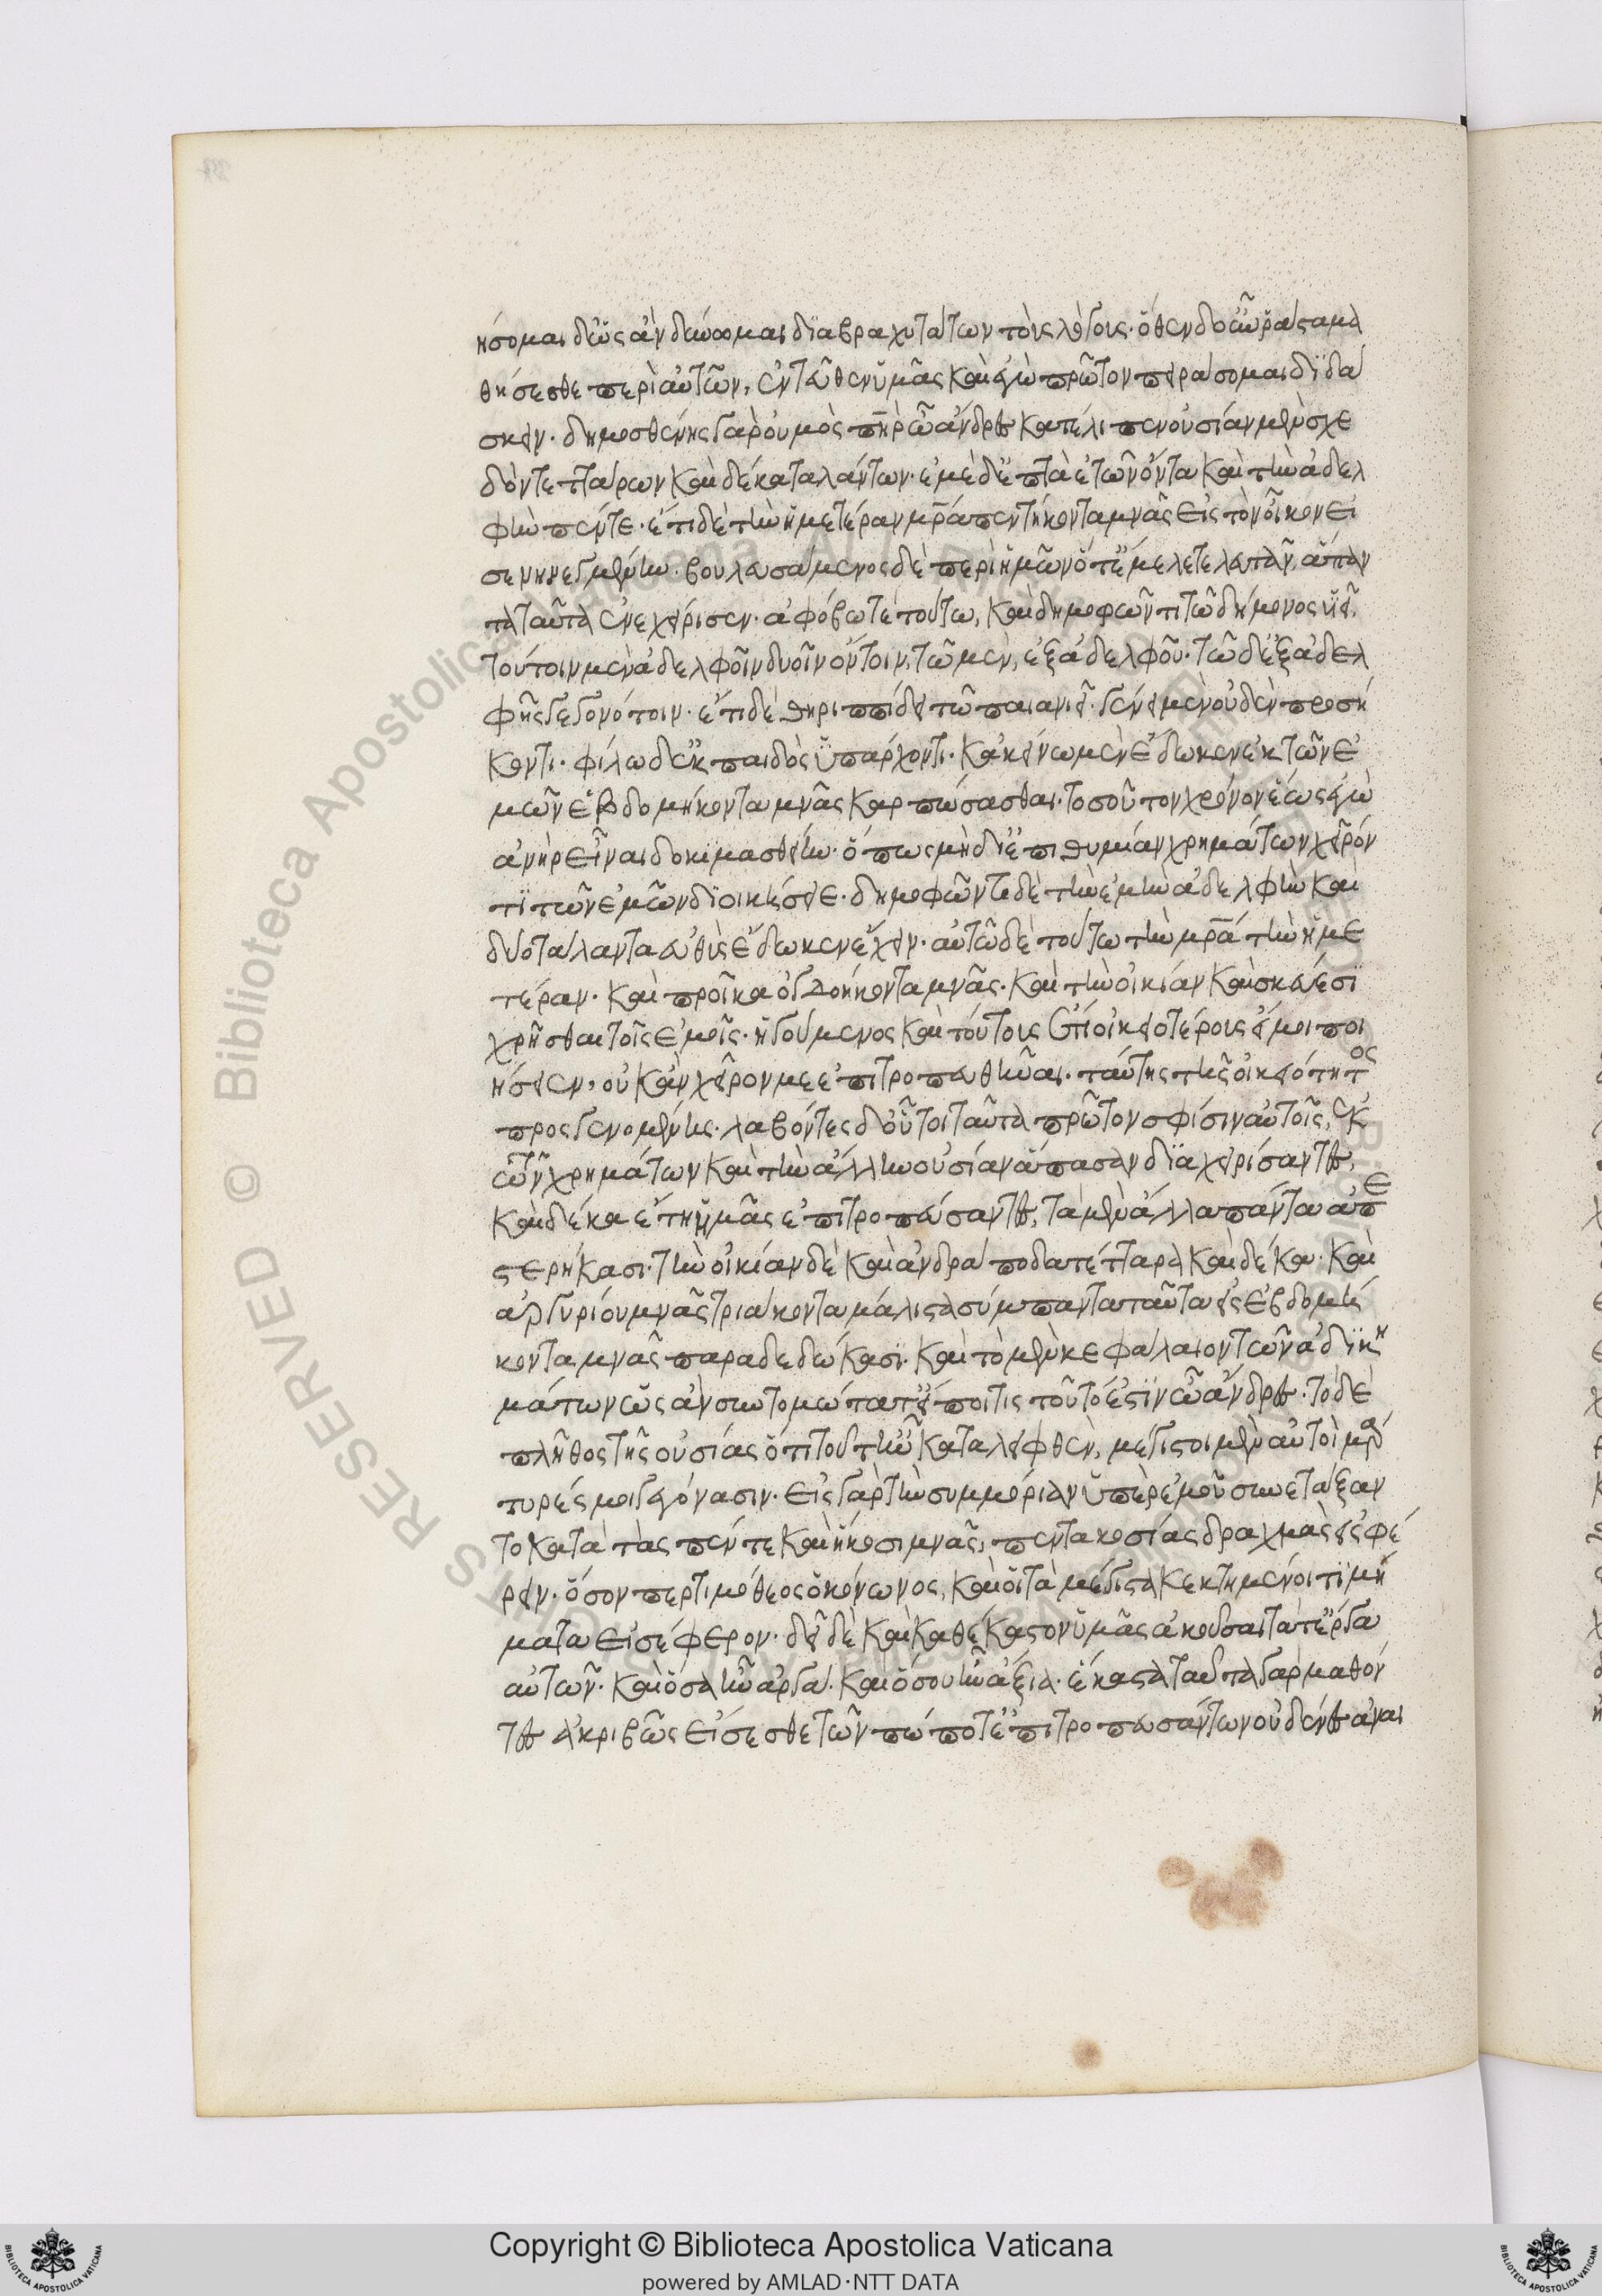 ήσομαι δ' ὡς ἂν δύνωμαι διὰ βραχυτάτων τοὺς λόγους. ὅθεν δ' οὖν ῥᾷστα μα
θήσεσθε περὶ αὐτῶν, ἐντεῦθεν ὑμᾶς καὶ ἐγὼ πρῶτον πειράσομαι διδά
σκειν. δημοσθένης γὰρ οὑμὸς πηρ ὦ ἄνδρες κατέλιπεν οὐσίαν μὲν σχε
δὸν τεττάρων καὶ δέκα ταλάντων. ἐμὲ δ' ἑπτὰ ἐτῶν ὄντα καὶ τὴν ἀδελ
φὴν πέντε. ἔτι δὲ τὴν ἡμετέραν μρα πεντήκοντα μνᾶς εἰς τὸν οἶκον εἰ
σενηνεγμένην. βουλευσάμενος δὲ περὶ ἡμῶν ὅτ' ἔμελλε τελευτᾶν, ἅπαν
τα ταῦτα ἐνεχείρισεν. ἀφόβω τε τούτω, καὶ δημοφῶντι τῶ δήμωνος υἱεῖ.
τούτοιν μὲν ἀδελφοῖν δυοῖν ὄντοιν, τῶ μὲν, ἐξ ἀδελφοῦ. τῶ δ' ἐξ ἀδελ
φῆς γεγονότοιν. ἔτι δὲ θηριππίδη τῶ παιανιεῖ. γένει μὲν οὐδὲν προσή
κοντι. φίλω δ' ἐκ παιδὸς ὑπάρχοντι. κἀκείνω μὲν ἔδωκεν ἐκ τῶν ἐ
μῶν ἑβδομήκοντα μνᾶς καρπώσασθαι. τοσοῦτον χρόνον ἕως ἐγὼ
ἀνὴρ εἶναι δοκιμασθείην. ὅπως μὴ δι' ἐπιθυμίαν χρημάτων χεῖρόν
τι τῶν ἐμῶν διοικήσειε. δημοφῶντι δὲ τὴν ἐμὴν ἀδελφὴν καὶ
δύο τάλαντα εὐθὺς ἔδωκεν ἔχειν. αὐτῶ δὲ τούτω τὴν μρα τὴν ἡμε
τέραν. καὶ προῖκα ὀγδοήκοντα μνᾶς. καὶ τὴν οἰκίαν καὶ σκεύεσι
χρῆσθαι τοῖς ἐμοῖς. ἡγούμενος καὶ τούτους ἔτι οἰκειοτέρους εἴ μοι ποι
ήσειεν, οὐκ ἂν χεῖρόν με ἐπιτροπευθῆναι. ταύτης τῆς οἰκειότητος
προσγενομένης. λαβόντες δ' οὗτοι ταῦτα πρῶτον σφίσιν αὐτοῖς, ἐκ
τῶν χρημάτων καὶ τὴν ἄλλην οὐσίαν ἅπασαν διαχειρίσαντες,
καὶ δέκα ἔτη ἡμᾶς ἐπιτροπεύσαντες, τὰ μὲν ἄλλα πάντα ἀπε
στερήκασι. τὴν οἰκίαν δὲ καὶ ἀνδράποδα τέτταρα καὶ δέκα. καὶ
ἀργυρίου μνᾶς τριάκοντα μάλιστα σύμπαντα ταῦτα εἰς ἑβδομή
κοντα μνᾶς παραδεδώκασι. καὶ τὸ μὲν κεφάλαιον τῶν ἀδικη
μάτων ὡς ἂν συντομώτατ' εἴποι τις τοῦτό ἐστιν ὦ ἄνδρες. τὸ δὲ
πλῆθος τῆς οὐσίας ὅτι τοῦτ' ἦν καταλειφθὲν, μέγιστοι μὲν αὐτοὶ μάρ
τυρές μοι γεγόνασιν. εἰς γὰρ τὴν συμμορίαν ὑπὲρ ἐμοῦ συνετάξαν
το κατὰ τὰς πέντε καὶ εἴκοσι μνᾶς, πεντακοσίας δραχμὰς εἰσφέ
ρειν. ὅσον περ τιμόθεος ὁ κόνωνος, καὶ οἱ τὰ μέγιστα κεκτημένοι τιμή
ματα εἰσέφερον. δεῖ δὲ καὶ καθ' ἕκαστον ὑμᾶς ἀκοῦσαι τά τ' ἐνεργὰ
αὐτῶν. καὶ ὅσα ἦν ἀργά. καὶ ὅσου ἦν ἄξια. ἕκαστα ταῦτα γὰρ μαθόν
τες ἀκριβῶς εἴσεσθε τῶν πώποτ' ἐπιτροπευσάντων οὐδένες ἀναι